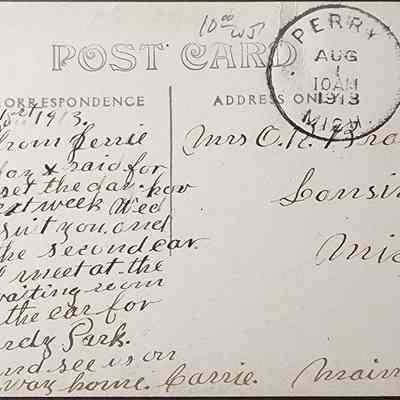 10.00
POST CARD
PERRY
AUG
1
10AM
1913
MICH.
CORRESPONDENCE
ADDRESS ON
1913.
from
day & said for
set the day. how
next week Wed
suit you and
the second car
meet at the
waiting room
the car for
Park.
and see us on
way home. Carrie.
Mrs O. R.
Lansin
Mic
Main